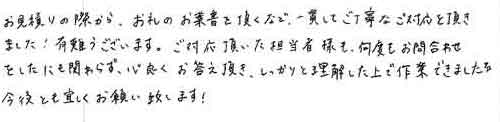 お見積りの際から、お礼のお葉書を頂くなど、一貫してご丁寧なご対応を頂き
ました！有難うございます。ご対応頂いた担当者様も、何度もお問合わせ
をしたにも関わらず、心良くお答え頂き、しっかりと理解した上で作業できましたな
今後とも宜しくお願い致します！